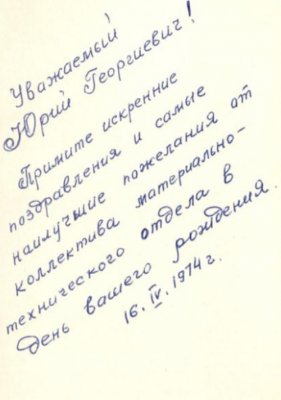 Уважаемый
Юрий Георгиевич!
Примите искренние
поздравления и самые
наилучшие пожелания от
коллектива материально-
технического отдела в
день вашего рождения.
16.IV.1974г.